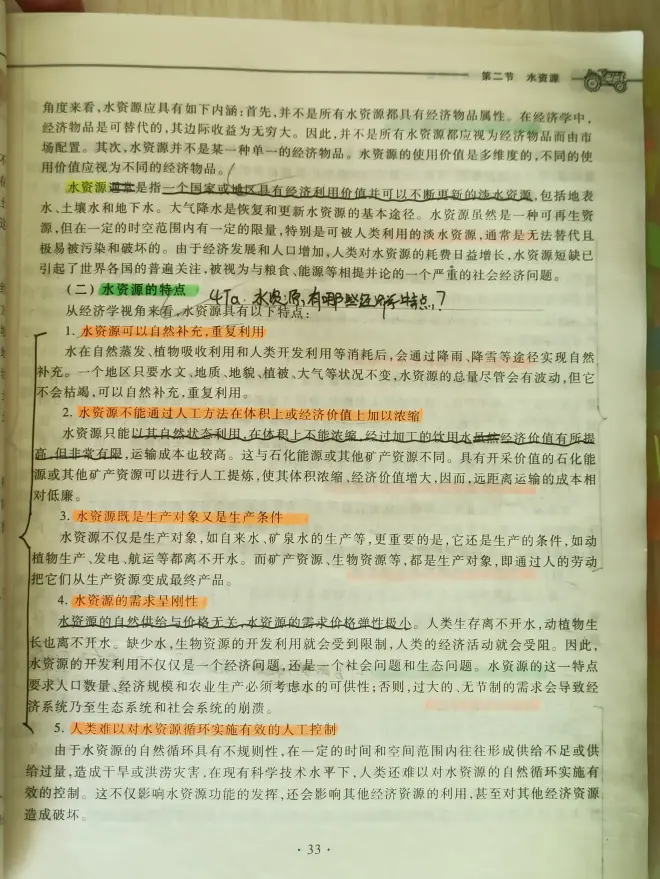 第二节 水资源
角度来看,水资源应具有如下内涵:首先,并不是所有水资源都具有经济物品属性。在经济学中,
经济物品是可替代的,其边际收益为无穷大。因此,并不是所有水资源都应视为经济物品而由市
场配置。其次,水资源并不是某一种单一的经济物品。水资源的使用价值是多维度的,不同的使
用价值应视为不同的经济物品。
水资源通常是指一个国家或地区具有经济利用价值并可以不断更新的涉水资源,包括地表
水、土壤水和地下水。大气降水是恢复和更新水资源的基本途径。水资源虽然是一种可再生资
源,但在一定的时空范围内有一定的限量,特别是可被人类利用的淡水资源,通常是无法替代且
极易被污染和破坏的。由于经济发展和人口增加,人类对水资源的耗费日益增长,水资源短缺已
引起了世界各国的普遍关注,被视为与粮食、能源等相提并论的一个严重的社会经济问题。
(二)水资源的特点 47a. 水资源有哪些经济学特点?
从经济学视角来看,水资源具有以下特点:
1. 水资源可以自然补充,重复利用
水在自然蒸发、植物吸收利用和人类开发利用等消耗后,会通过降雨、降雪等途径实现自然
补充。一个地区只要水文、地质、地貌、植被、大气等状况不变,水资源的总量尽管会有波动,但它
不会枯竭,可以自然补充,重复利用。
2. 水资源不能通过人工方法在体积上或经济价值上加以浓缩
水资源只能以其自然状态利用,在体积上不能浓缩,经过加工的饮用水虽然经济价值有所提
高,但非常有限,运输成本也较高。这与石化能源或其他矿产资源不同。具有开采价值的石化能
源或其他矿产资源可以进行人工提炼,使其体积浓缩、经济价值增大,因而,远距离运输的成本相
对低廉。
3. 水资源既是生产对象又是生产条件
水资源不仅是生产对象,如自来水、矿泉水的生产等,更重要的是,它还是生产的条件,如动
植物生产、发电、航运等都离不开水。而矿产资源、生物资源等,都是生产对象,即通过人的劳动
把它们从生产资源变成最终产品。
4. 水资源的需求呈刚性
水资源的自然供给与价格无关,水资源的需求价格弹性极小。人类生存离不开水,动植物生
长也离不开水。缺少水,生物资源的开发利用就会受到限制,人类的经济活动就会受阻。因此,
水资源的开发利用不仅仅是一个经济问题,还是一个社会问题和生态问题。水资源的这一特点
要求人口数量、经济规模和农业生产必须考虑水的可供性;否则,过大的、无节制的需求会导致经
济系统乃至生态系统和社会系统的崩溃。
5. 人类难以对水资源循环实施有效的人工控制
由于水资源的自然循环具有不规则性,在一定的时间和空间范围内往往形成供给不足或供
给过量,造成干旱或洪涝灾害,在现有科学技术水平下,人类还难以对水资源的自然循环实施有
效的控制。这不仅影响水资源功能的发挥,还会影响其他经济资源的利用,甚至对其他经济资源
造成破坏。
· 33 ·